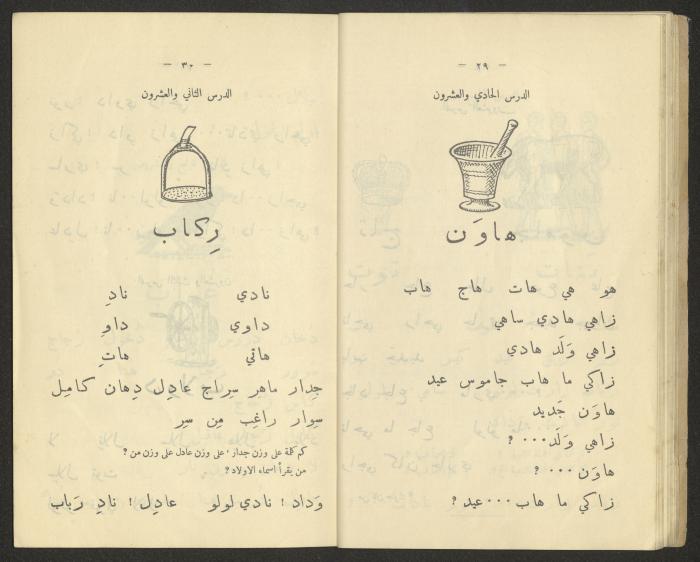 — ٢٩ —
الدرس الحادي والعشرون
هاوَن
هو هي هات هاج هاب
زاهي هادي ساهي
زاهي وَلَد هادي
زاكي ما هاب جاموس عيد
هاوَن جَديد
زاهي وَلَد... ؟
هاوَن ... ؟
زاكي ما هاب ... عيد ؟
— ٣٠ —
الدرس الثاني والعشرون
رِكاب
نادي نادِ
داوي داوِ
هاتي هاتِ
جِدار ماهِر سِراج عادِل دِهان كامِل
سِوار راغِب مِن سِر
كم كلمة على وزن جدار ؛ على وزن عادل على وزن من ؟
من يقرأ اسماء الاولاد ؟
وَداد ؛ نادي لولو عادِل ؛ نادِ رَباب